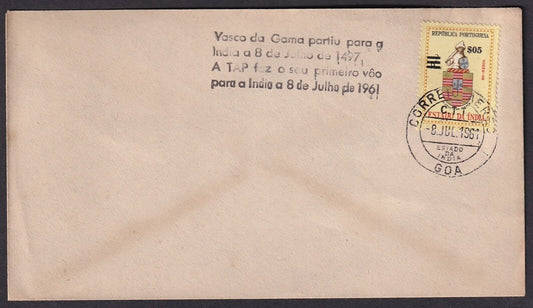 Vasco da Gama partiu para a
India a 8 de Julho de 1497,
A TAP fez o seu primeiro vôo
para a India a 8 de Julho de 1961
REPÚBLICA PORTUGUESA
$05
ESTADO DA ÍNDIA
CORREIO AÉREO
C.T.T.
-8.JUL.1961
ESTADO
DA
INDIA
GOA